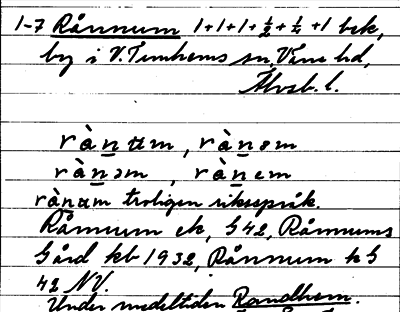 1-7 Rånnum 1+1+1+½+½+1 bek,
by i V. Tunhems sn, Väne hd,
Älvsb. l.
rànum, rànəm
rànəm, rànem
rànum troligen riksspråk.
Rånnum ek, G42, Rånnums
Gård kb 1932, Rånnum k G
42 NV.
Under medeltiden Randhem.